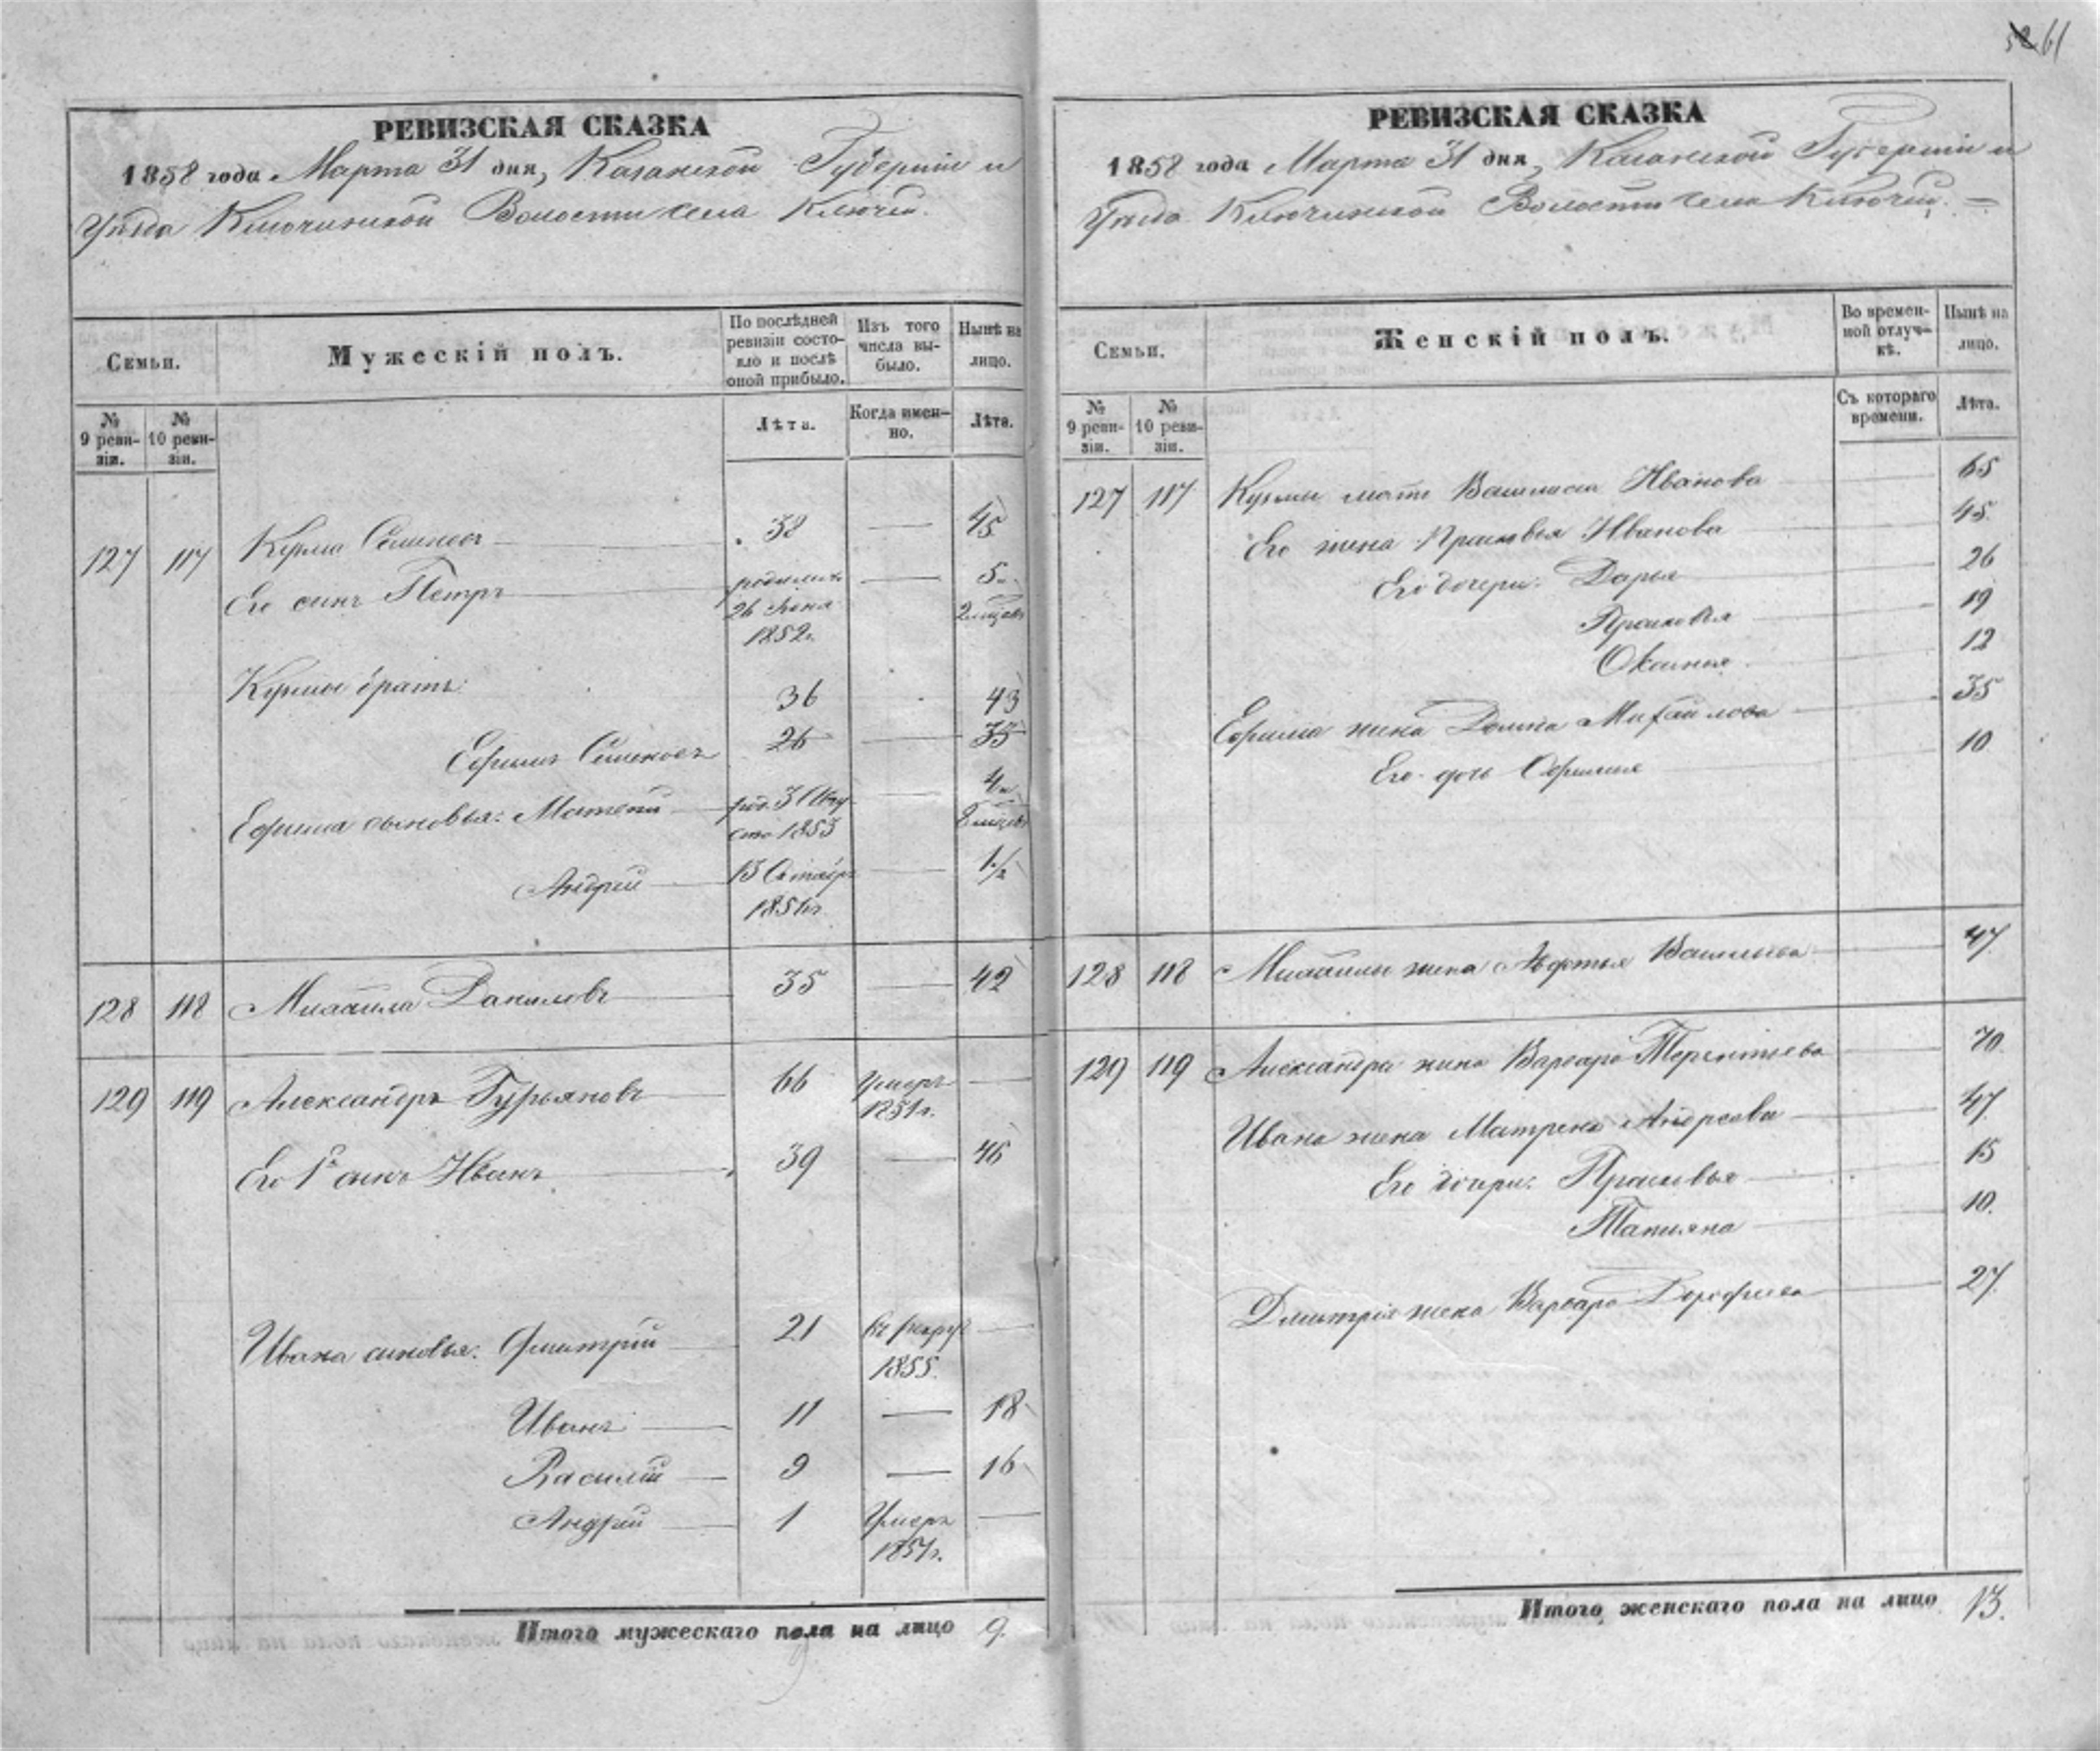 61
РЕВИЗСКАЯ СКАЗКА
1858 года Марта 31 дня, Казанской Губерніи и
Уѣзда Ключинской Волости села Ключей.
Семьи.
Мужескій полъ.
По послѣдней ревизіи состояло и послѣ оной прибыло.
Изъ того числа выбыло.
Нынѣ на лицо.
№ 9 ревизіи.
№ 10 ревизіи.
Лѣта.
Когда именно.
Лѣта.
127 117 Кузма Семеновъ 38 — 45
Его сынъ Петръ родился 26 1852г. — 5
Кузмы братъ: 36 43
Ефимъ Семеновъ 26 — 33
Ефима сыновья: Матвѣй род. 3 Августа 1853 — 4
Андрей 13 Октябр 1856г — 1 1/2
128 118 Михайла Даниловъ 35 — 42
129 119 Александръ Гурьяновъ 66 Умеръ 1851г. —
Его 1й сынъ Иванъ 39 — 46
Ивана сыновья: Дмитрій 21 въ рекру 1855. —
Иванъ 11 — 18
Василій 9 — 16
Андрей 1 Умеръ 1851г. —
Итого мужескаго пола на лицо 9.
РЕВИЗСКАЯ СКАЗКА
1858 года Марта 31 дня, Казанской Губерніи и
Уѣзда Ключинской Волости села Ключей.
Семьи.
Женскій полъ.
Во временной отлучкѣ.
Нынѣ на лицо.
№ 9 ревизіи.
№ 10 ревизіи.
Съ котораго времени.
Лѣта.
127 117 Кузмы мать Василиса Иванова 65
Его жена Прасковья Иванова 45
Его дочери: Дарья 26
Прасковья 19
Оксинья 12
Ефима жена Домна Михайлова 35
Его дочь Офимья 10
128 118 Михайлы жена Авдотья Васильева 47
129 119 Александра жена Варвара Терентьева 70
Ивана жена Матрена Андреева 47
Его дочери: Прасковья 15
Татьяна 10.
Дмитрія жена Варвара Дорофеева 27
Итого женскаго пола на лицо 13.